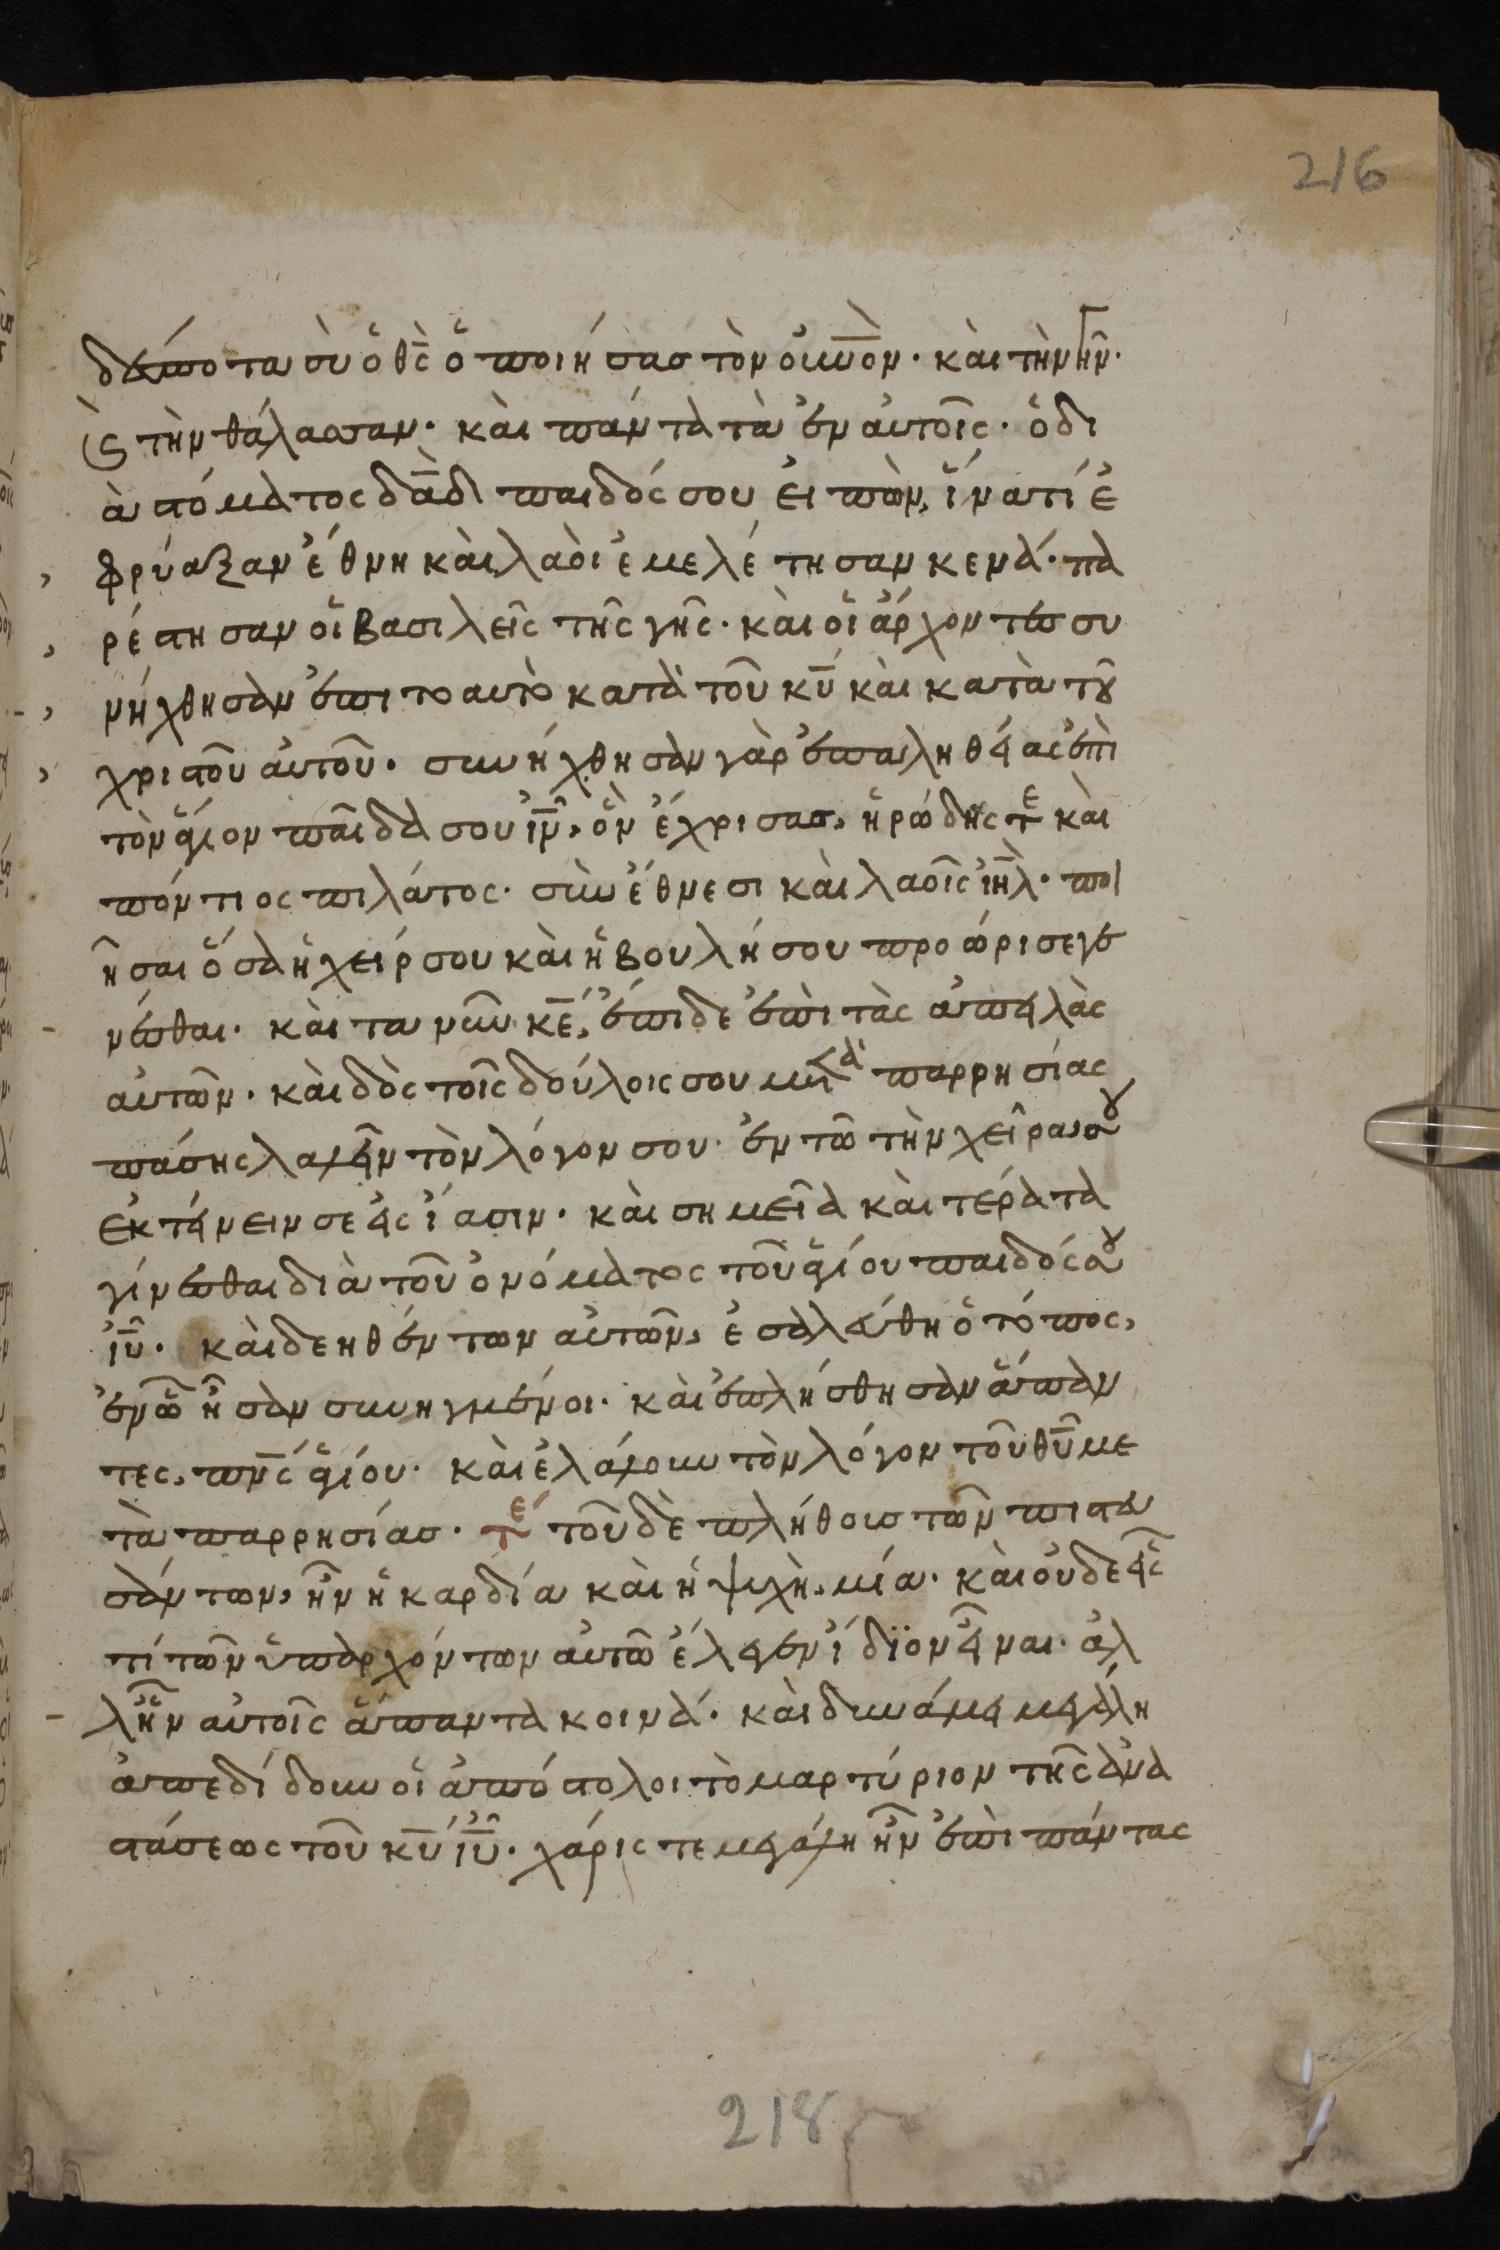 216
δέσποτα σὺ ὁ θς ὁ ποιήσας τὸν οὐνον· καὶ τὴν γῆν·
καὶ τὴν θάλασσαν· καὶ πάντα τὰ ἐν αὐτοῖς· ὁ δι
ὰ στόματος δαδ παιδός σου εἰπὼν, ἵνατί ἐ
φρύαξαν ἔθνη καὶ λαοὶ ἐμελέτησαν κενά· πα
ρέστησαν οἱ βασιλεῖς τῆς γῆς· καὶ οἱ ἄρχοντες συ
νήχθησαν ἐπι το αυτὸ κατὰ τοῦ κυ καὶ κατὰ τοῦ
χριστοῦ αὐτοῦ· συνήχθησαν γὰρ ἐπαληθείας ἐπὶ
τὸν ἅγιον παῖδα σου ιν, ὃν ἔχρισας, ἡρώδης τε καὶ
πόντιος πιλάτος· σὺν ἔθνεσι καὶ λαοῖς ιηλ· ποι
ῆσαι ὅσα ἡ χείρ σου καὶ ἡ βουλή σου προώρισε γε
νέσθαι· καὶ τα νῦν κε, ἔπιδε ἐπὶ τὰς ἀπειλὰς
αὐτῶν· καὶ δὸς τοῖς δούλοις σου μετὰ παρρησίας
πάσης λαλεῖν τὸν λόγον σου· ἐν τῶ τὴν χεῖρα σου
ἐκτείνειν σε εἰς ἴασιν· καὶ σημεῖα καὶ τέρατα
γίνεσθαι διὰ τοῦ ὀνόματος τοῦ ἁγίου παιδός σου
ιυ· καὶ δεηθέντων αὐτῶν, ἐσαλεύθη ὁ τόπος,
ἐν ὧ ἦσαν συνηγμένοι· καὶ ἐπλήσθησαν ἅπαν
τες, πνς ἁγίου· καὶ ἐλάλουν τὸν λόγον τοῦ θυ με
τὰ παρρησίας· τε τοῦ δὲ πλήθους τῶν πιστευ
σάντων, ἦν ἡ καρδία καὶ ἡ ψυχὴ, μία· καὶ οὐδεεῖς
τί τῶν ὑπαρχόντων αὐτῶ ἔλεγεν ἴδϊον εἶναι· ἀλ
λἦν αὐτοῖς ἅπαντα κοινά· καὶ δυνάμει μεγάλη
ἀπεδίδουν οἱ ἀπόστολοι τὸ μαρτύριον τῆς ἀνα
στάσεως τοῦ κυ ιυ· χάρις τε μεγάλη ἦν ἐπὶ πάντας
218